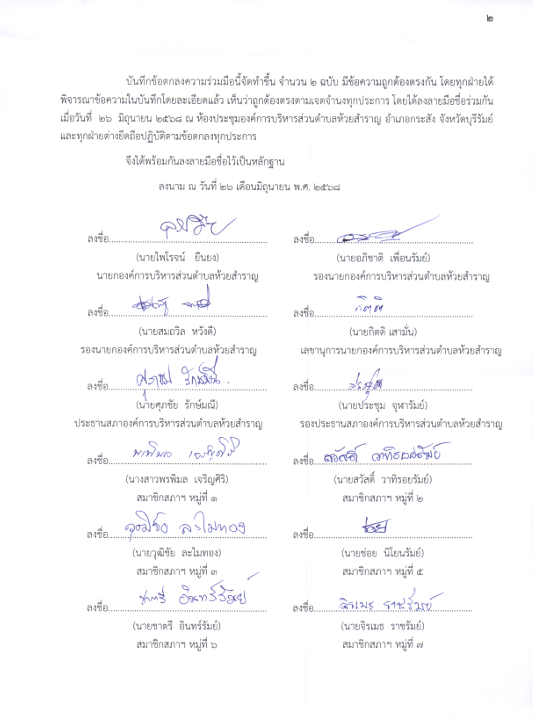 ๒
บันทึกข้อตกลงความร่วมมือนี้จัดทำขึ้น จำนวน ๒ ฉบับ มีข้อความถูกต้องตรงกัน โดยทุกฝ่ายได้
พิจารณาข้อความในบันทึกโดยละเอียดแล้ว เห็นว่าถูกต้องตรงตามเจตจำนงทุกประการ โดยได้ลงลายมือชื่อร่วมกัน
เมื่อวันที่ ๒๖ มิถุนายน ๒๕๖๘ ณ ห้องประชุมองค์การบริหารส่วนตำบลห้วยสำราญ อำเภอกระสัง จังหวัดบุรีรัมย์
และทุกฝ่ายต่างยึดถือปฏิบัติตามข้อตกลงทุกประการ
จึงได้พร้อมกันลงลายมือชื่อไว้เป็นหลักฐาน
ลงนาม ณ วันที่ ๒๖ เดือนมิถุนายน พ.ศ. ๒๕๖๘
ลงชื่อ ลงชื่อ
(นายไพโรจน์ ยืนยง) (นายอภิชาติ เพื่อนรัมย์)
นายกองค์การบริหารส่วนตำบลห้วยสำราญ รองนายกองค์การบริหารส่วนตำบลห้วยสำราญ
ลงชื่อ ลงชื่อ กิตติ
(นายสมถวิล หวังดี) (นายกิตติ เสามั่น)
รองนายกองค์การบริหารส่วนตำบลห้วยสำราญ เลขานุการนายกองค์การบริหารส่วนตำบลห้วยสำราญ
ลงชื่อ ศุภชัย รักษ์มณี ลงชื่อ ประชุม
(นายศุภชัย รักษ์มณี) (นายประชุม จุฬารัมย์)
ประธานสภาองค์การบริหารส่วนตำบลห้วยสำราญ รองประธานสภาองค์การบริหารส่วนตำบลห้วยสำราญ
ลงชื่อ พรพิมล เจริญศิริ ลงชื่อ สวัสดิ์ วาทิรอยรัมย์
(นางสาวพรพิมล เจริญศิริ) (นายสวัสดิ์ วาทิรอยรัมย์)
สมาชิกสภาฯ หมู่ที่ ๑ สมาชิกสภาฯ หมู่ที่ ๒
ลงชื่อ วุฒิชัย ละไมทอง ลงชื่อ ช่อย
(นายวุฒิชัย ละไมทอง) (นายช่อย นิโยนรัมย์)
สมาชิกสภาฯ หมู่ที่ ๓ สมาชิกสภาฯ หมู่ที่ ๕
ลงชื่อ ชาตรี อินทร์รัมย์ ลงชื่อ จิรเมธ ราชรัมย์
(นายชาตรี อินทร์รัมย์) (นายจิรเมธ ราชรัมย์)
สมาชิกสภาฯ หมู่ที่ ๖ สมาชิกสภาฯ หมู่ที่ ๗